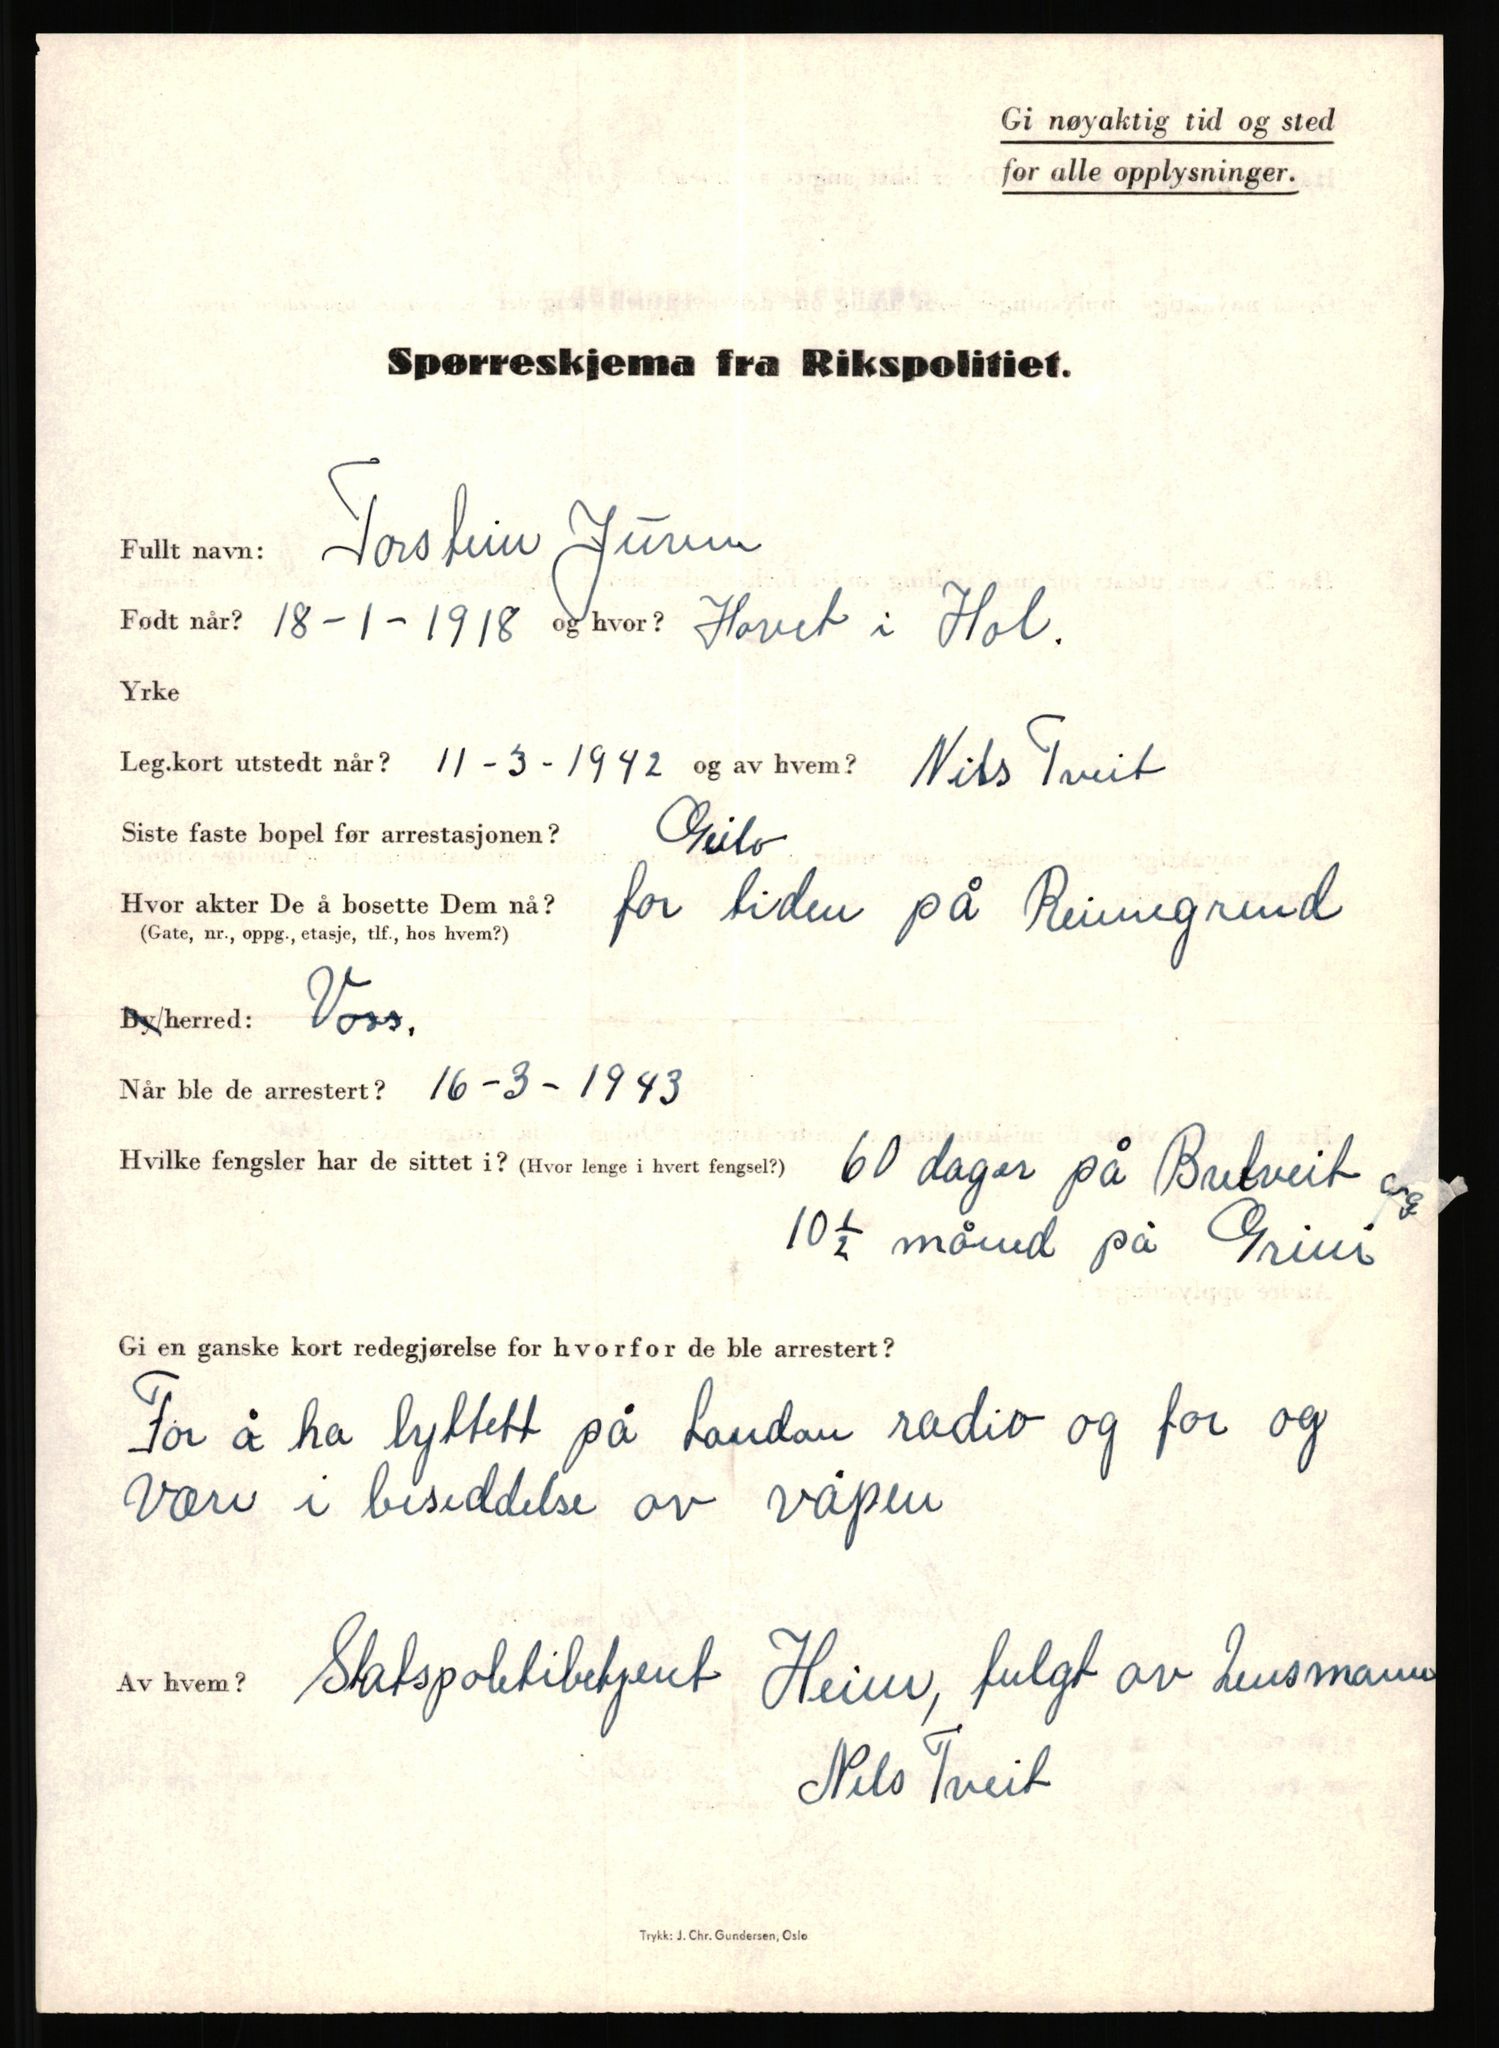 Gi nøyaktig tid og sted
for alle opplysninger.
Spørreskjema fra Rikspolitiet.
Fullt navn: Torstein Juven
Født når? 18-1-1918 og hvor? Hovet i Hol.
Yrke
Leg.kort utstedt når? 11-3-1942 og av hvem? Nils Tveit
Siste faste bopel før arrestasjonen? Geilo
Hvor akter De å bosette Dem nå? for tiden på Reimegrend
(Gate, nr., oppg., etasje, tlf., hos hvem?)
By/herred: Voss.
Når ble de arrestert? 16-3-1943
Hvilke fengsler har de sittet i? (Hvor lenge i hvert fengsel?) 60 dager på Bretveit og
10 1/2 måned på Grini
Gi en ganske kort redegjørelse for hvorfor de ble arrestert?
For å ha lyttett på London radio og for og
være i besiddelse av våpen
Av hvem? Statspolitibetjent Heim, fulgt av Lensmann
Nils Tveit
Trykk: J. Chr. Gundersen, Oslo